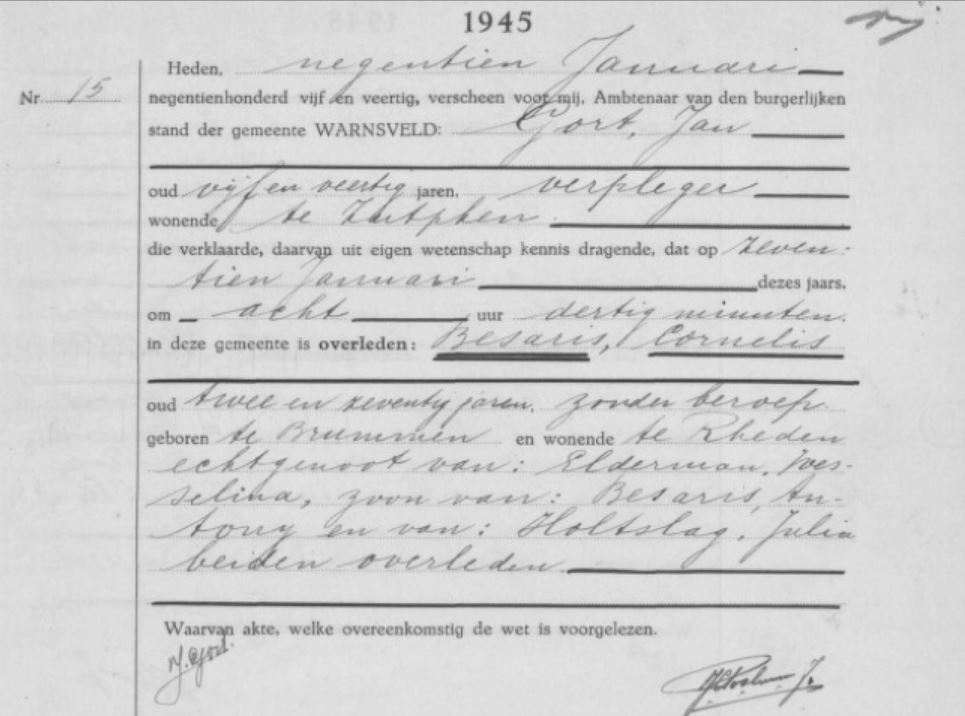 1945
Heden, negentien Januari
Nr. 15 negentienhonderd vijf en veertig, verscheen voor mij, Ambtenaar van den burgerlijken
stand der gemeente WARNSVELD: Gort, Jan
oud vijf en veertig jaren, verpleger
wonende te Zutphen.
die verklaarde, daarvan uit eigen wetenschap kennis dragende, dat op zeven-
tien Januari dezes jaars,
om acht uur dertig minuten.
in deze gemeente is overleden: Besaris, Cornelis
oud twee en zeventig jaren, zonder beroep
geboren te Brummen en wonende te Rheden
echtgenoot van: Elderman, Wes-
selina, zoon van: Besaris, An-
tony en van: Holtslag, Julia
beiden overleden.
Waarvan akte, welke overeenkomstig de wet is voorgelezen.
J. Gort.